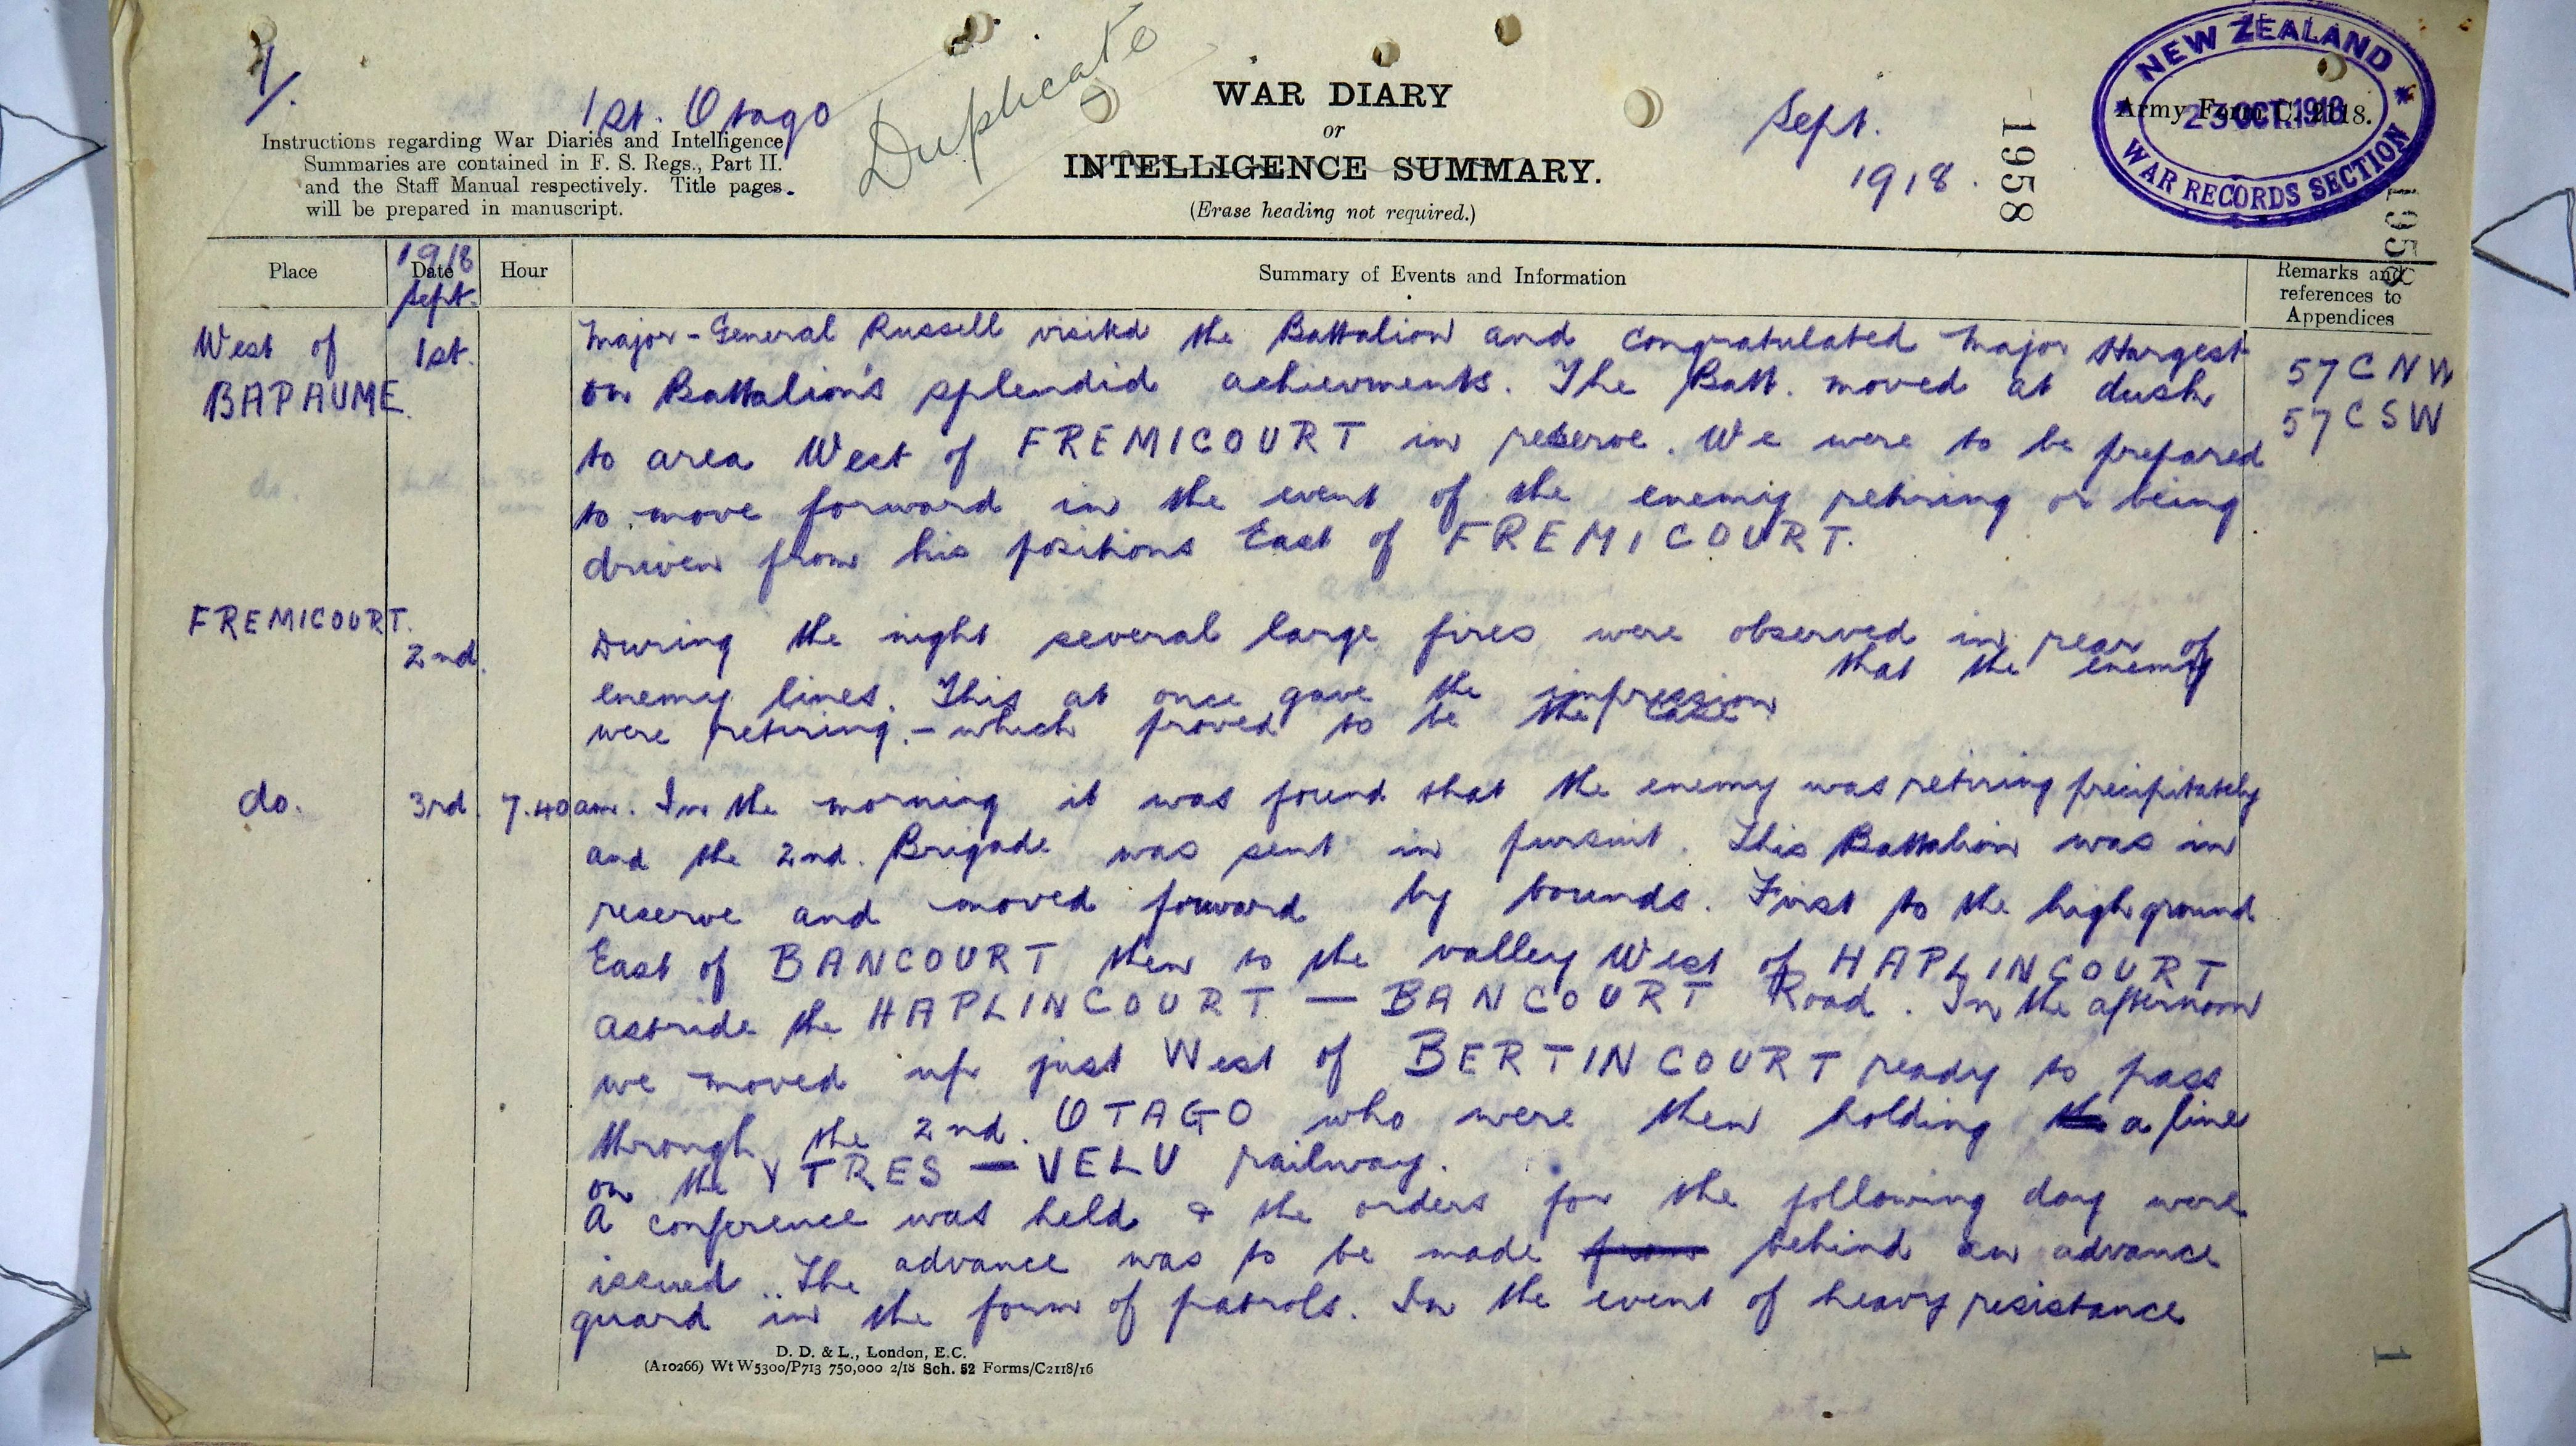 1/.
1st. Otago
Duplicate
WAR DIARY
or
INTELLIGENCE SUMMARY.
(Erase heading not required.)
Instructions regarding War Diaries and Intelligence
Summaries are contained in F. S. Regs., Part II.
and the Staff Manual respectively. Title pages
will be prepared in manuscript.
Sept.
1918.
1958
NEW ZEALAND
Army Form C. 2118.
23 OCT. 1918
WAR RECORDS SECTION
1958
Place
1918
Date
Sept.
Hour
Summary of Events and Information
Remarks and
references to
Appendices
West of
BAPAUME.
1st.
Major-General Russell visited the Battalion and congratulated Major Hargest
on Battalion's splendid achievments. The Batt. moved at dusk
to area West of FREMICOURT in reserve. We were to be prepared
to move forward in the event of the enemy retiring or being
driven from his positions East of FREMICOURT.
57 C N W
57 C S W
FREMICOURT.
2nd.
During the night several large fires were observed in rear of
enemy lines. This at once gave the impression that the enemy
were retiring, - which proved to be the case.
do.
3rd.
7.40 am. In the morning it was found that the enemy was retiring precipitately
and the 2nd. Brigade was sent in pursuit. This Battalion was in
reserve and moved forward by bounds. First to the high ground
East of BANCOURT then to the valley West of HAPLINCOURT
astride the HAPLINCOURT — BANCOURT Road. In the afternoon
we moved up just West of BERTINCOURT ready to pass
through the 2nd. OTAGO who were then holding th a line
on the YTRES — VELU railway.
A conference was held & the orders for the following day were
issued. The advance was to be made from behind an advance
guard in the form of patrols. In the event of heavy resistance
D. D. & L., London, E.C.
(A10266) Wt W5300/P713 750,000 2/18 Sch. 52 Forms/C2118/16
1